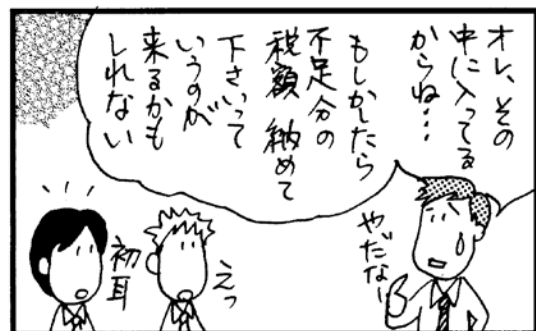 オレ、その
中に入ってる
からね…
もしかしたら
不足分の
税額 納めて
下さいって
いうのが
来るかも
しれない
やだなー
えっ
初耳